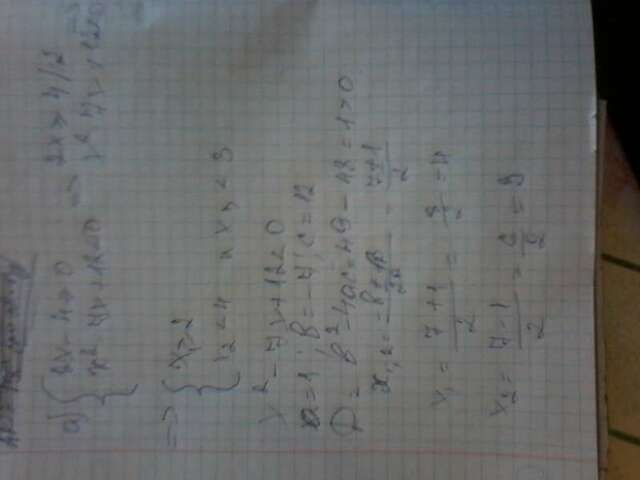 a) { 2x - 4 > 0 => 2x > 4 /2
x² - 7x + 12 < 0 x² - 7x + 12 < 0 =>
=> { x₁ > 2
x₂ < 4 x₃ < 3
x² - 7x + 12 < 0
a = 1 ; b = -7 ; c = 12
D = b² - 4ac = 49 - 48 = 1 > 0
x₁,₂ = = 7±1/2
x₁ = 7+1/2 = 8/2 = 4
x₂ = 7-1/2 = 6/2 = 3